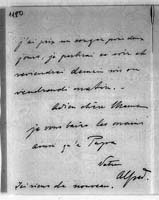 1180
j'ai pris un congé pour deux
jours, je partirai ce soir et
reviendrai demain soir ou
vendredi matin.
Adieu chère Maman
je vous baise les mains
ainsi qu'à Papa
Votre
Alfred.
Ici rien de nouveau.